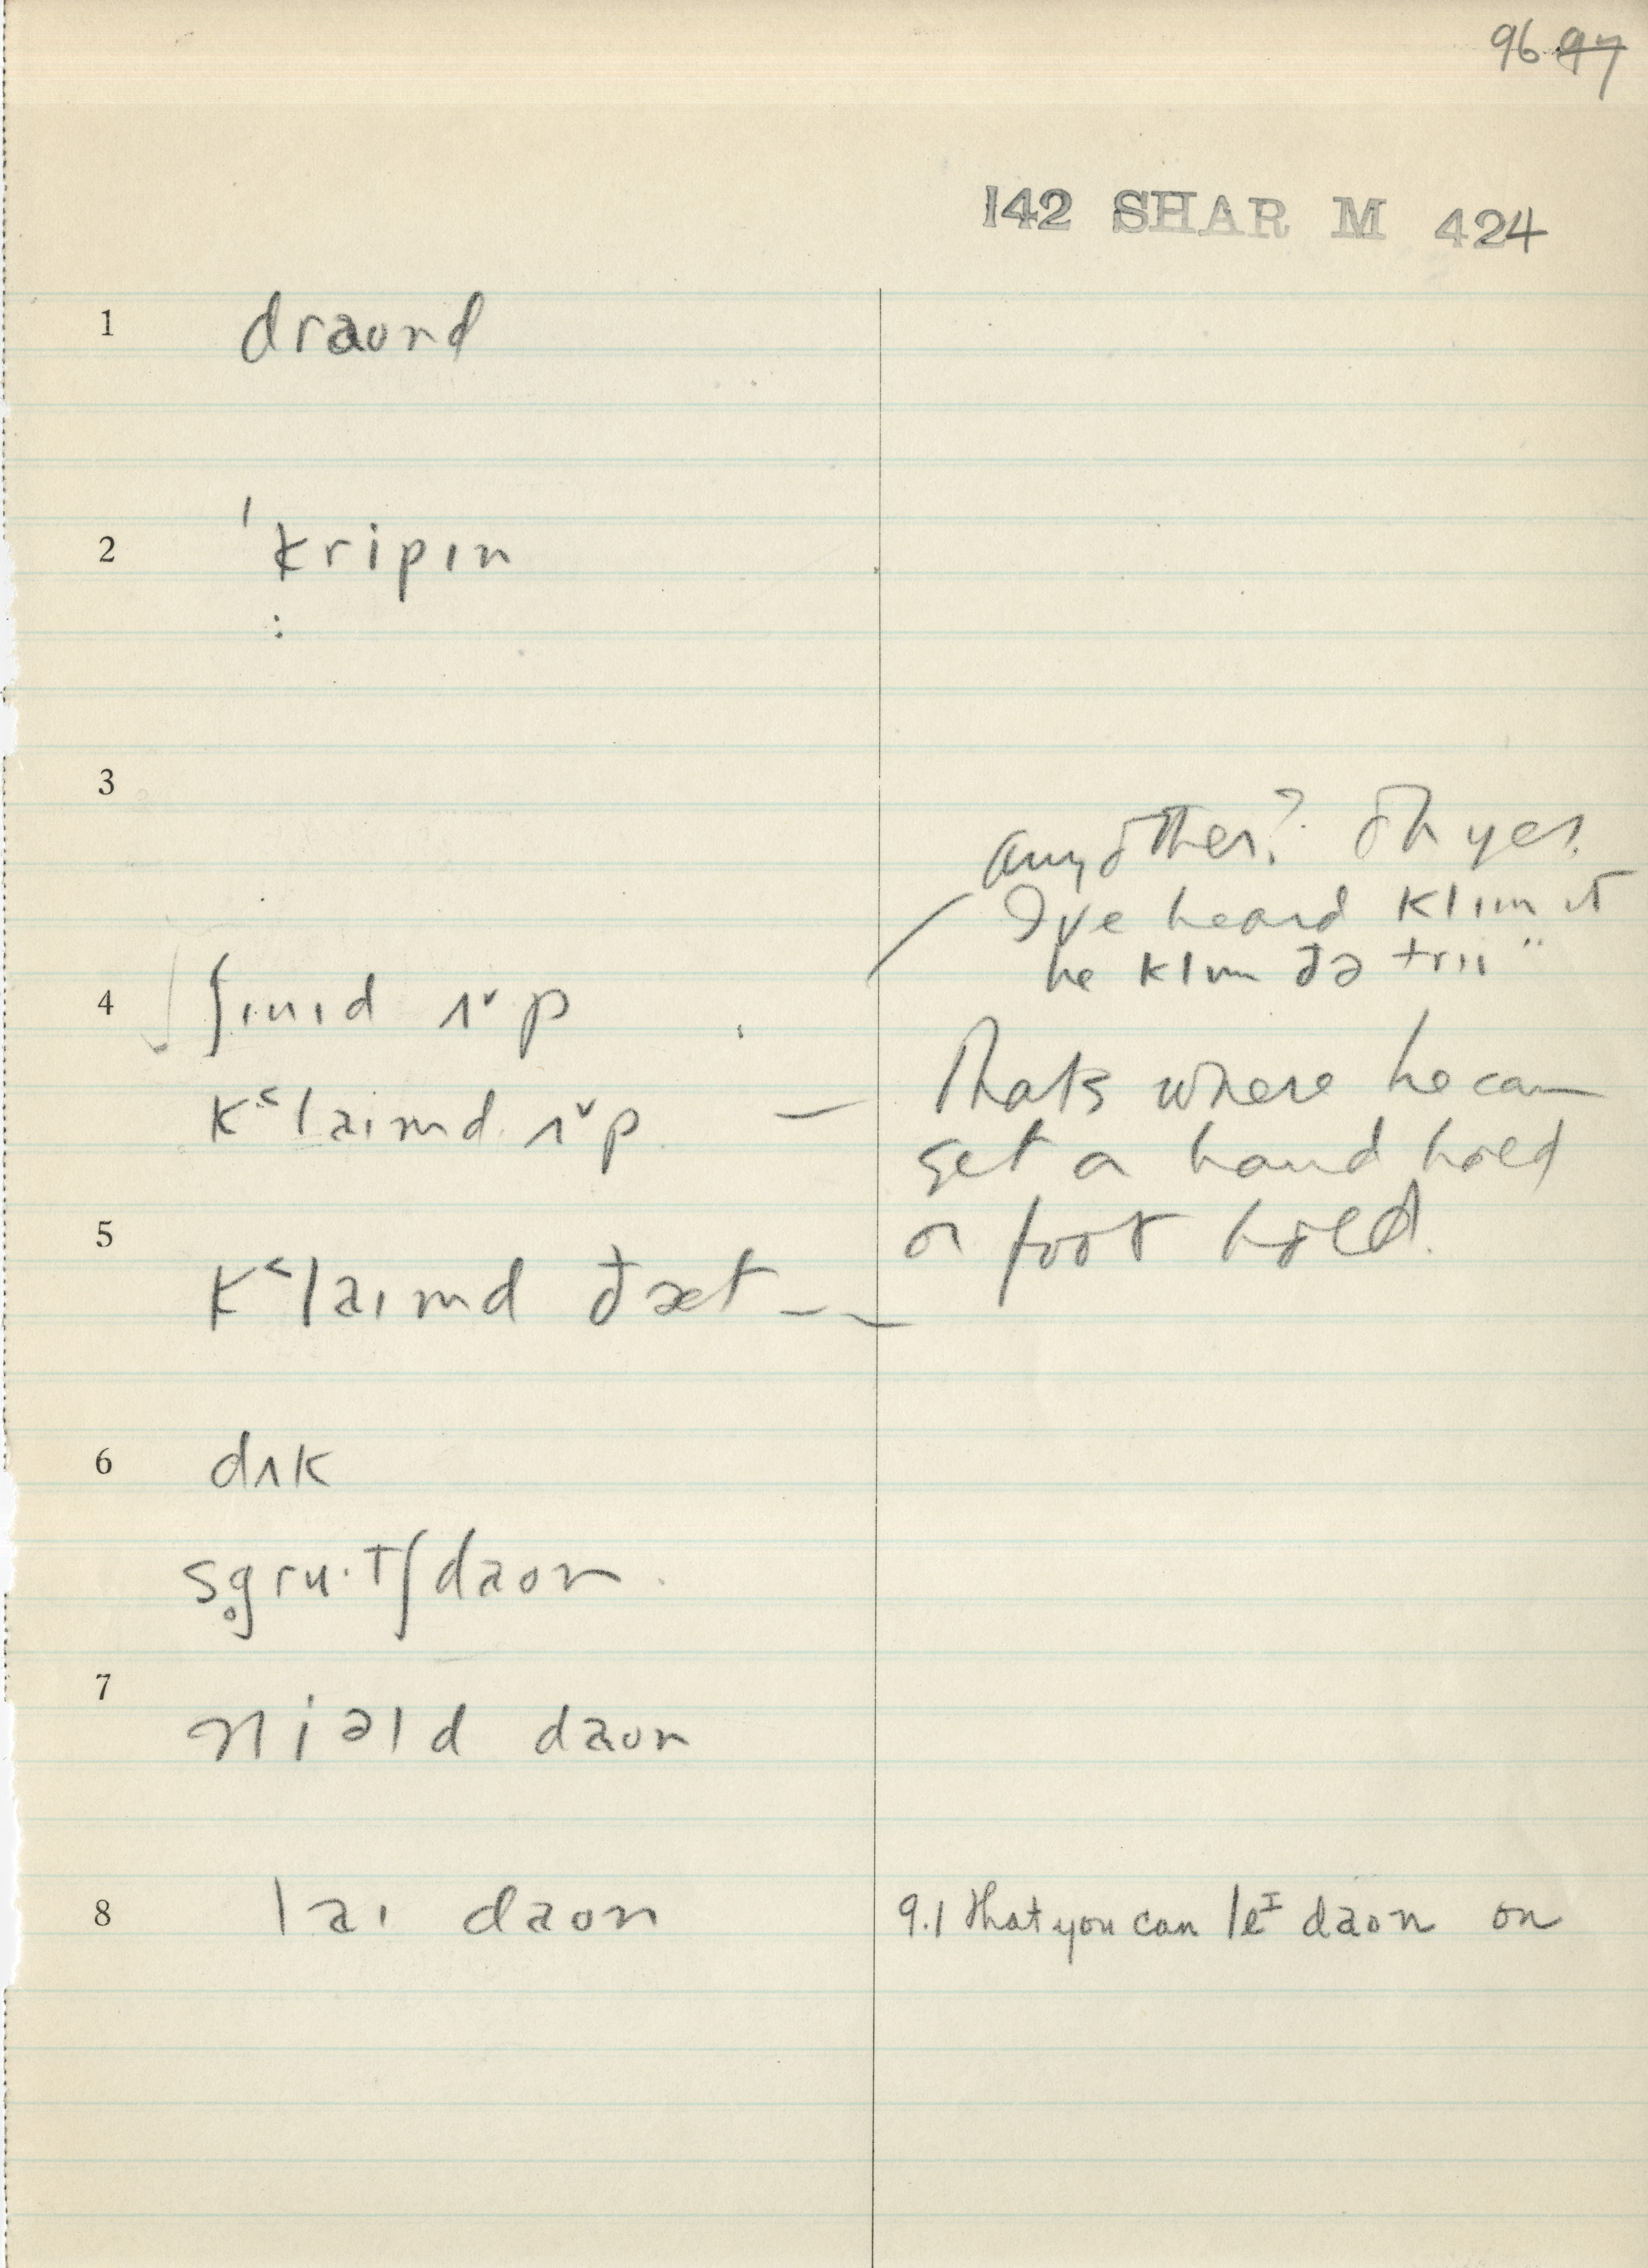 96 97
142 SHAR M 424
1 draʊnd
2 ˈkripɪn
:
3
any other? Oh yes.
I've heard klɪm it
he klɪm đə trɪi"
4 ʃɪnɪd ʌˇp
k˂laɪmd ʌˇp —
Thats where he can
get a hand hold
or foot hold.
5
k˂laɪmd đæt --
6 dʌk
sg̥ru·tʃ daʊn
7
niəld daʊn
8 laɪ daʊn 9.1 that you can leᴵ daʊn on